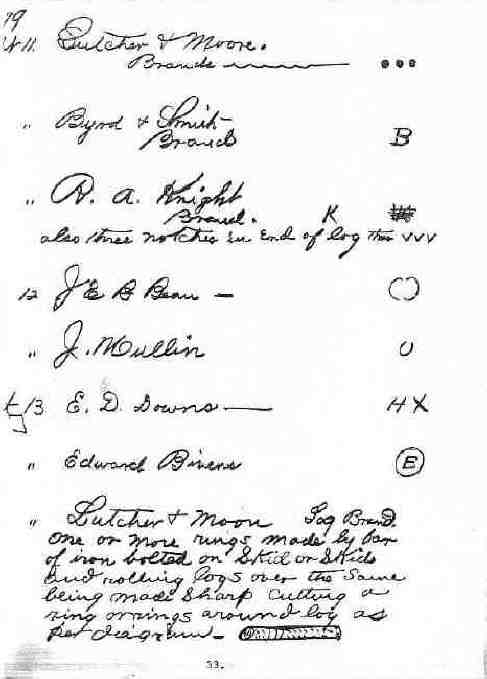 79
11. Lutcher & Moore.
Brands ... 
" Byrd & Smith
Brand B
" R. A. Knight
Brand. K #
also three notches in End of log thus VVV
12 J E B Bean —
" J. Mullin U
13 E. D. Downs — H X
" Edward Bivens E
" Lutcher & Moon Log Brand.
One or more rings made by bar
of iron bolted on Skid or Skids
and rolling logs over the same
being made sharp cutting a
ring or rings around log as
per diagram —
33.